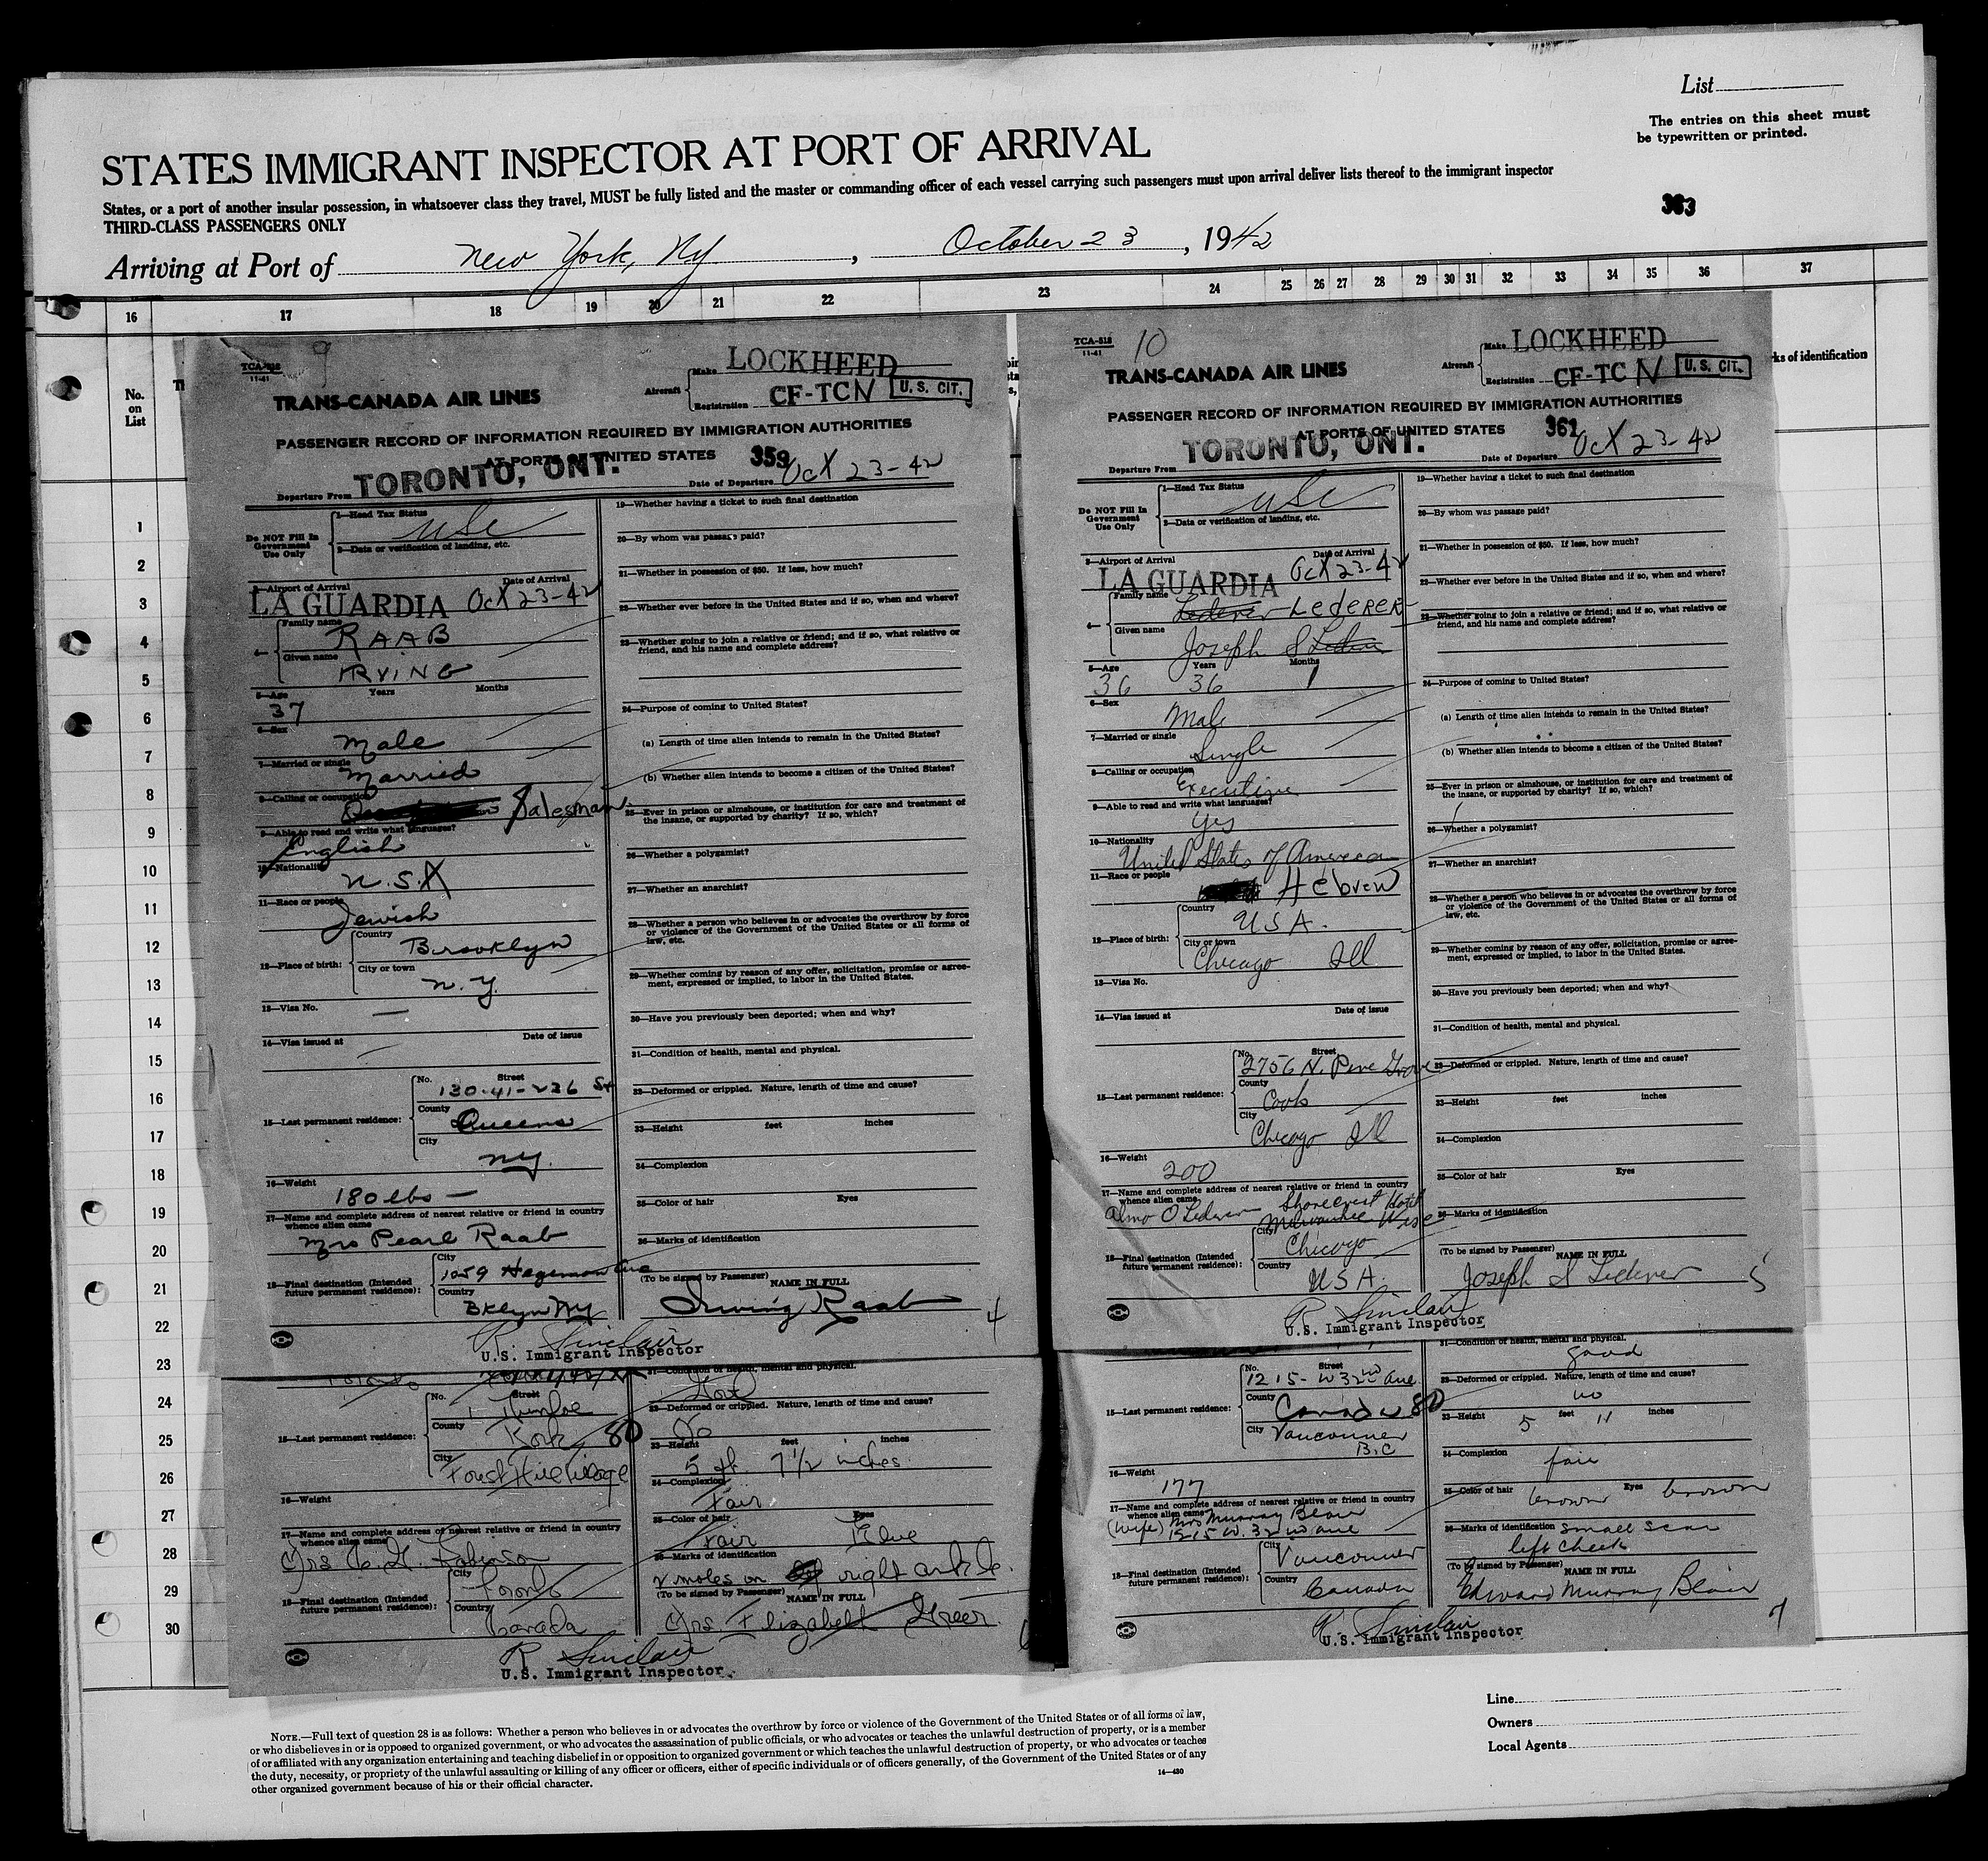 List
The entries on this sheet must
be typewritten or printed.
STATES IMMIGRANT INSPECTOR AT PORT OF ARRIVAL
States, or a port of another insular possession, in whatsoever class they travel, MUST be fully listed and the master or commanding officer of each vessel carrying such passengers must upon arrival deliver lists thereof to the immigrant inspector
THIRD-CLASS PASSENGERS ONLY
363
Arriving at Port of New York, Ny, October 23, 1942
16 17 18 19 20 21 22 23 24 25 26 27 28 29 30 31 32 33 34 35 36 37
No.
on
List
ks of identification
1
2
3
4
5
6
7
8
9
10
11
12
13
14
15
16
17
18
19
20
21
22
23
24
25
26
27
28
29
30
TCA-518
11-41
9
Aircraft
Make LOCKHEED
Registration CF-TCN
U. S. CIT.
TRANS-CANADA AIR LINES
PASSENGER RECORD OF INFORMATION REQUIRED BY IMMIGRATION AUTHORITIES
AT PORTS OF UNITED STATES 359
Departure From TORONTO, ONT. Date of Departure Oct 23-42
Do NOT Fill In
Government
Use Only
1—Head Tax Status
USC
2—Data or verification of landing, etc.
3—Airport of Arrival Date of Arrival
LA GUARDIA Oct 23-42
4—
Family name
RAAB
Given name
IRVING
5—Age Years Months
37
6—Sex
Male
7—Married or single
Married
8—Calling or occupation
Salesman
9—Able to read and write what languages?
English
10—Nationality
U.S.A
11—Race or people
Jewish
12—Place of birth:
Country
Brooklyn
City or town
N.Y.
13—Visa No.
—
14—Visa issued at Date of issue
—
15—Last permanent residence:
No. Street
130-41-236 St
County
Queens
City
NY.
16—Weight
180 lbs —
17—Name and complete address of nearest relative or friend in country
whence alien came
Mrs Pearl Raab
18—Final destination (Intended
future permanent residence):
City
1059 Hegeman Ave
Country
Bklyn NY
19—Whether having a ticket to such final destination
20—By whom was passage paid?
21—Whether in possession of $50. If less, how much?
22—Whether ever before in the United States and if so, when and where?
23—Whether going to join a relative or friend; and if so, what relative or
friend, and his name and complete address?
24—Purpose of coming to United States?
(a) Length of time alien intends to remain in the United States?
(b) Whether alien intends to become a citizen of the United States?
25—Ever in prison or almshouse, or institution for care and treatment of
the insane, or supported by charity? If so, which?
26—Whether a polygamist?
27—Whether an anarchist?
28—Whether a person who believes in or advocates the overthrow by force
or violence of the Government of the United States or all forms of
law, etc.
29—Whether coming by reason of any offer, solicitation, promise or agree-
ment, expressed or implied, to labor in the United States.
30—Have you previously been deported; when and why?
31—Condition of health, mental and physical.
32—Deformed or crippled. Nature, length of time and cause?
33—Height feet inches
34—Complexion
35—Color of hair Eyes
36—Marks of identification
(To be signed by Passenger) NAME IN FULL
Irving Raab
4
R Sinclair
U.S. Immigrant Inspector
TCA-518
11-41
10
Aircraft
Make LOCKHEED
Registration CF-TCN
U. S. CIT.
TRANS-CANADA AIR LINES
PASSENGER RECORD OF INFORMATION REQUIRED BY IMMIGRATION AUTHORITIES
AT PORTS OF UNITED STATES 361
Departure From TORONTO, ONT. Date of Departure Oct 23-42
Do NOT Fill In
Government
Use Only
1—Head Tax Status
USC
2—Data or verification of landing, etc.
3—Airport of Arrival Date of Arrival
LA GUARDIA Oct 23-42
4—
Family name
Lederer LEDERER
Given name
Joseph S Lederer
5—Age Years Months
36 36 1
6—Sex
Male
7—Married or single
Single
8—Calling or occupation
Executive
9—Able to read and write what languages?
Yes
10—Nationality
United States of America
11—Race or people
Hebrew
12—Place of birth:
Country
USA.
City or town
Chicago Ill
13—Visa No.
14—Visa issued at Date of issue
15—Last permanent residence:
No. Street
2756 N. Pine Grove
County
Cook
City
Chicago Ill
16—Weight
200
17—Name and complete address of nearest relative or friend in country
whence alien came
Alma O Lederer Shorecrest Hotel
Milwaukee Wisc
18—Final destination (Intended
future permanent residence):
City
Chicago
Country
USA.
19—Whether having a ticket to such final destination
20—By whom was passage paid?
21—Whether in possession of $50. If less, how much?
22—Whether ever before in the United States and if so, when and where?
23—Whether going to join a relative or friend; and if so, what relative or
friend, and his name and complete address?
24—Purpose of coming to United States?
(a) Length of time alien intends to remain in the United States?
(b) Whether alien intends to become a citizen of the United States?
25—Ever in prison or almshouse, or institution for care and treatment of
the insane, or supported by charity? If so, which?
26—Whether a polygamist?
27—Whether an anarchist?
28—Whether a person who believes in or advocates the overthrow by force
or violence of the Government of the United States or all forms of
law, etc.
29—Whether coming by reason of any offer, solicitation, promise or agree-
ment, expressed or implied, to labor in the United States.
30—Have you previously been deported; when and why?
31—Condition of health, mental and physical.
32—Deformed or crippled. Nature, length of time and cause?
33—Height feet inches
34—Complexion
35—Color of hair Eyes
36—Marks of identification
(To be signed by Passenger) NAME IN FULL
Joseph S Lederer
5
R Sinclair
U.S. Immigrant Inspector
15—Last permanent residence:
No. Street
County
York 80
City
Forest Hill Village
16—Weight
17—Name and complete address of nearest relative or friend in country
whence alien came
Mrs Robinson
18—Final destination (Intended
future permanent residence):
City
Toronto
Country
Canada
31—Condition of health, mental and physical.
Good
32—Deformed or crippled. Nature, length of time and cause?
No
33—Height feet inches
5 ft. 7 1/2 inches
34—Complexion
Fair
35—Color of hair Eyes
Fair Blue
36—Marks of identification
2 moles on right ankle.
(To be signed by Passenger) NAME IN FULL
Mrs. Elizabeth Greer.
R Sinclair
U.S. Immigrant Inspector
15—Last permanent residence:
No. Street
1215- W 32nd Ave
County
Canada 80
City
Vancouver
B.C
16—Weight
177
17—Name and complete address of nearest relative or friend in country
whence alien came
(Wife) Mrs Murray Blair
1215 W. 32nd Ave
18—Final destination (Intended
future permanent residence):
City
Vancouver
Country
Canada
31—Condition of health, mental and physical.
good
32—Deformed or crippled. Nature, length of time and cause?
no
33—Height feet inches
5 11
34—Complexion
fair
35—Color of hair Eyes
brown brown
36—Marks of identification small scar
left cheek
(To be signed by Passenger) NAME IN FULL
Edward Murray Blair
7
R Sinclair
U.S. Immigrant Inspector
Line
Owners
Local Agents
NOTE.—Full text of question 28 is as follows: Whether a person who believes in or advocates the overthrow by force or violence of the Government of the United States or of all forms of law,
or who disbelieves in or is opposed to organized government, or who advocates the assassination of public officials, or who advocates or teaches the unlawful destruction of property, or is a member
of or affiliated with any organization entertaining and teaching disbelief in or opposition to organized government or which teaches the unlawful destruction of property, or who advocates or teaches
the duty, necessity, or propriety of the unlawful assaulting or killing of any officer or officers, either of specific individuals or of officers generally, of the Government of the United States or of any
other organized government because of his or their official character.
14—430